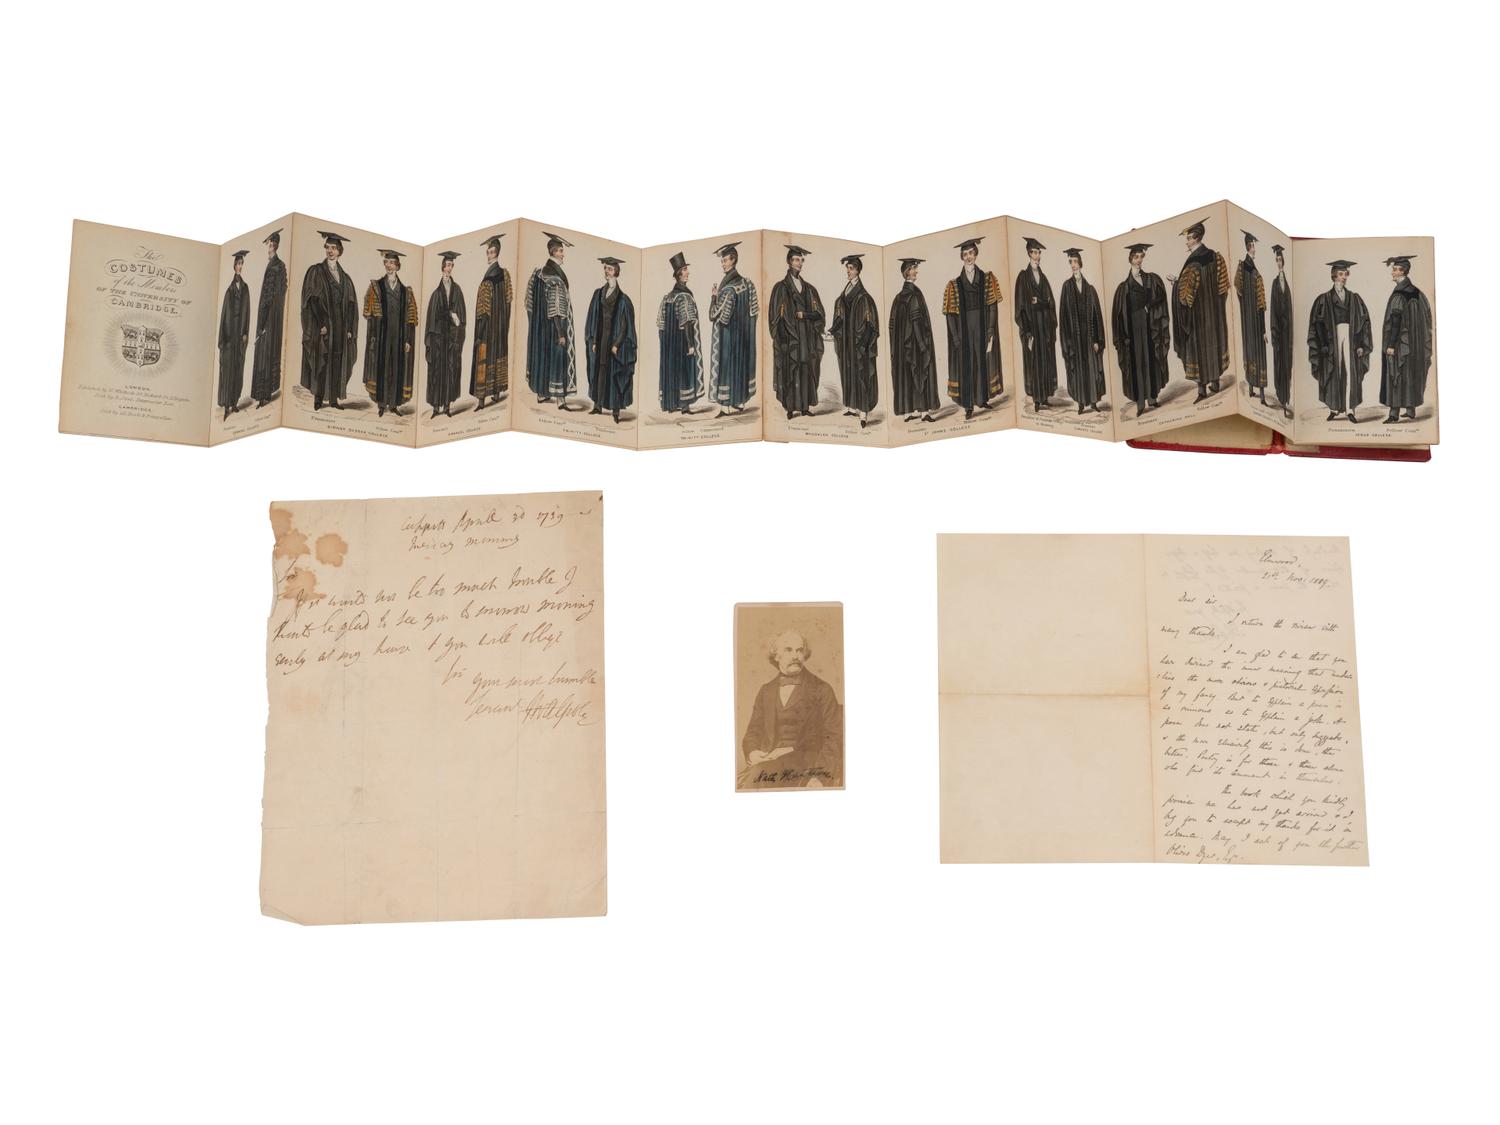 The
COSTUMES
of the Members
OF THE UNIVERSITY OF
CAMBRIDGE.
LONDON.
CAMBRIDGE.
Pensioner Fellow Comr.
SIDNEY SUSSEX COLLEGE
EMANUEL COLLEGE
Fellow Comr. Pensioner
TRINITY COLLEGE
Fellow Commoner
TRINITY COLLEGE
Pensioner Fellow Comr.
MAGDALEN COLLEGE
ST JOHNS COLLEGE
CATHERINE HALL
Pensioner Fellow Comr.
JESUS COLLEGE
April 3d 1739
morning
Sir
If it would not be too much trouble I
should be glad to see you to morrow morning
early at my house & you will oblige
Sir your most humble
Servant Walpole
Nath Hawthorne
Elmwood,
21st Nov: 1889.
Dear Sir,
I return the review with
many thanks.
I am glad to see that you
have divined the inner meaning that under-
lies the more obvious & pictorial expression
of my fancy. But to explain a poem is
as ruinous as to explain a joke. A
poem does not state, but only suggests,
& the more elusively this is done, the
better. Poetry is for those & those alone
who find its comment in themselves.
The book which you kindly
promise me has not yet arrived & I
beg you to accept my thanks for it in
advance. May I ask of you the further
Oliver Dyer, Esq.